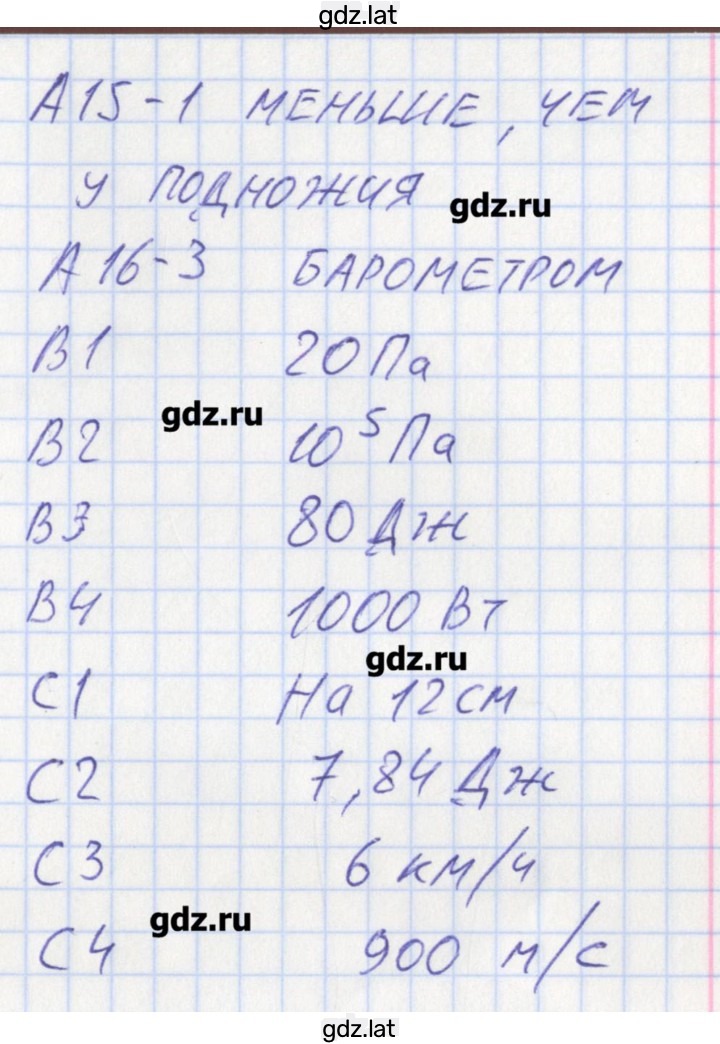 gdz.lat
А15-1 МЕНЬШЕ, ЧЕМ
У ПОДНОЖИЯ
gdz.ru
А16-3 БАРОМЕТРОМ
В1 20 Па
gdz.ru
В2 10⁵ Па
В3 80 Дж
В4 1000 Вт
gdz.ru
С1 На 12 см
С2 7,84 Дж
С3 6 км/ч
gdz.ru
С4 900 м/с
gdz.lat